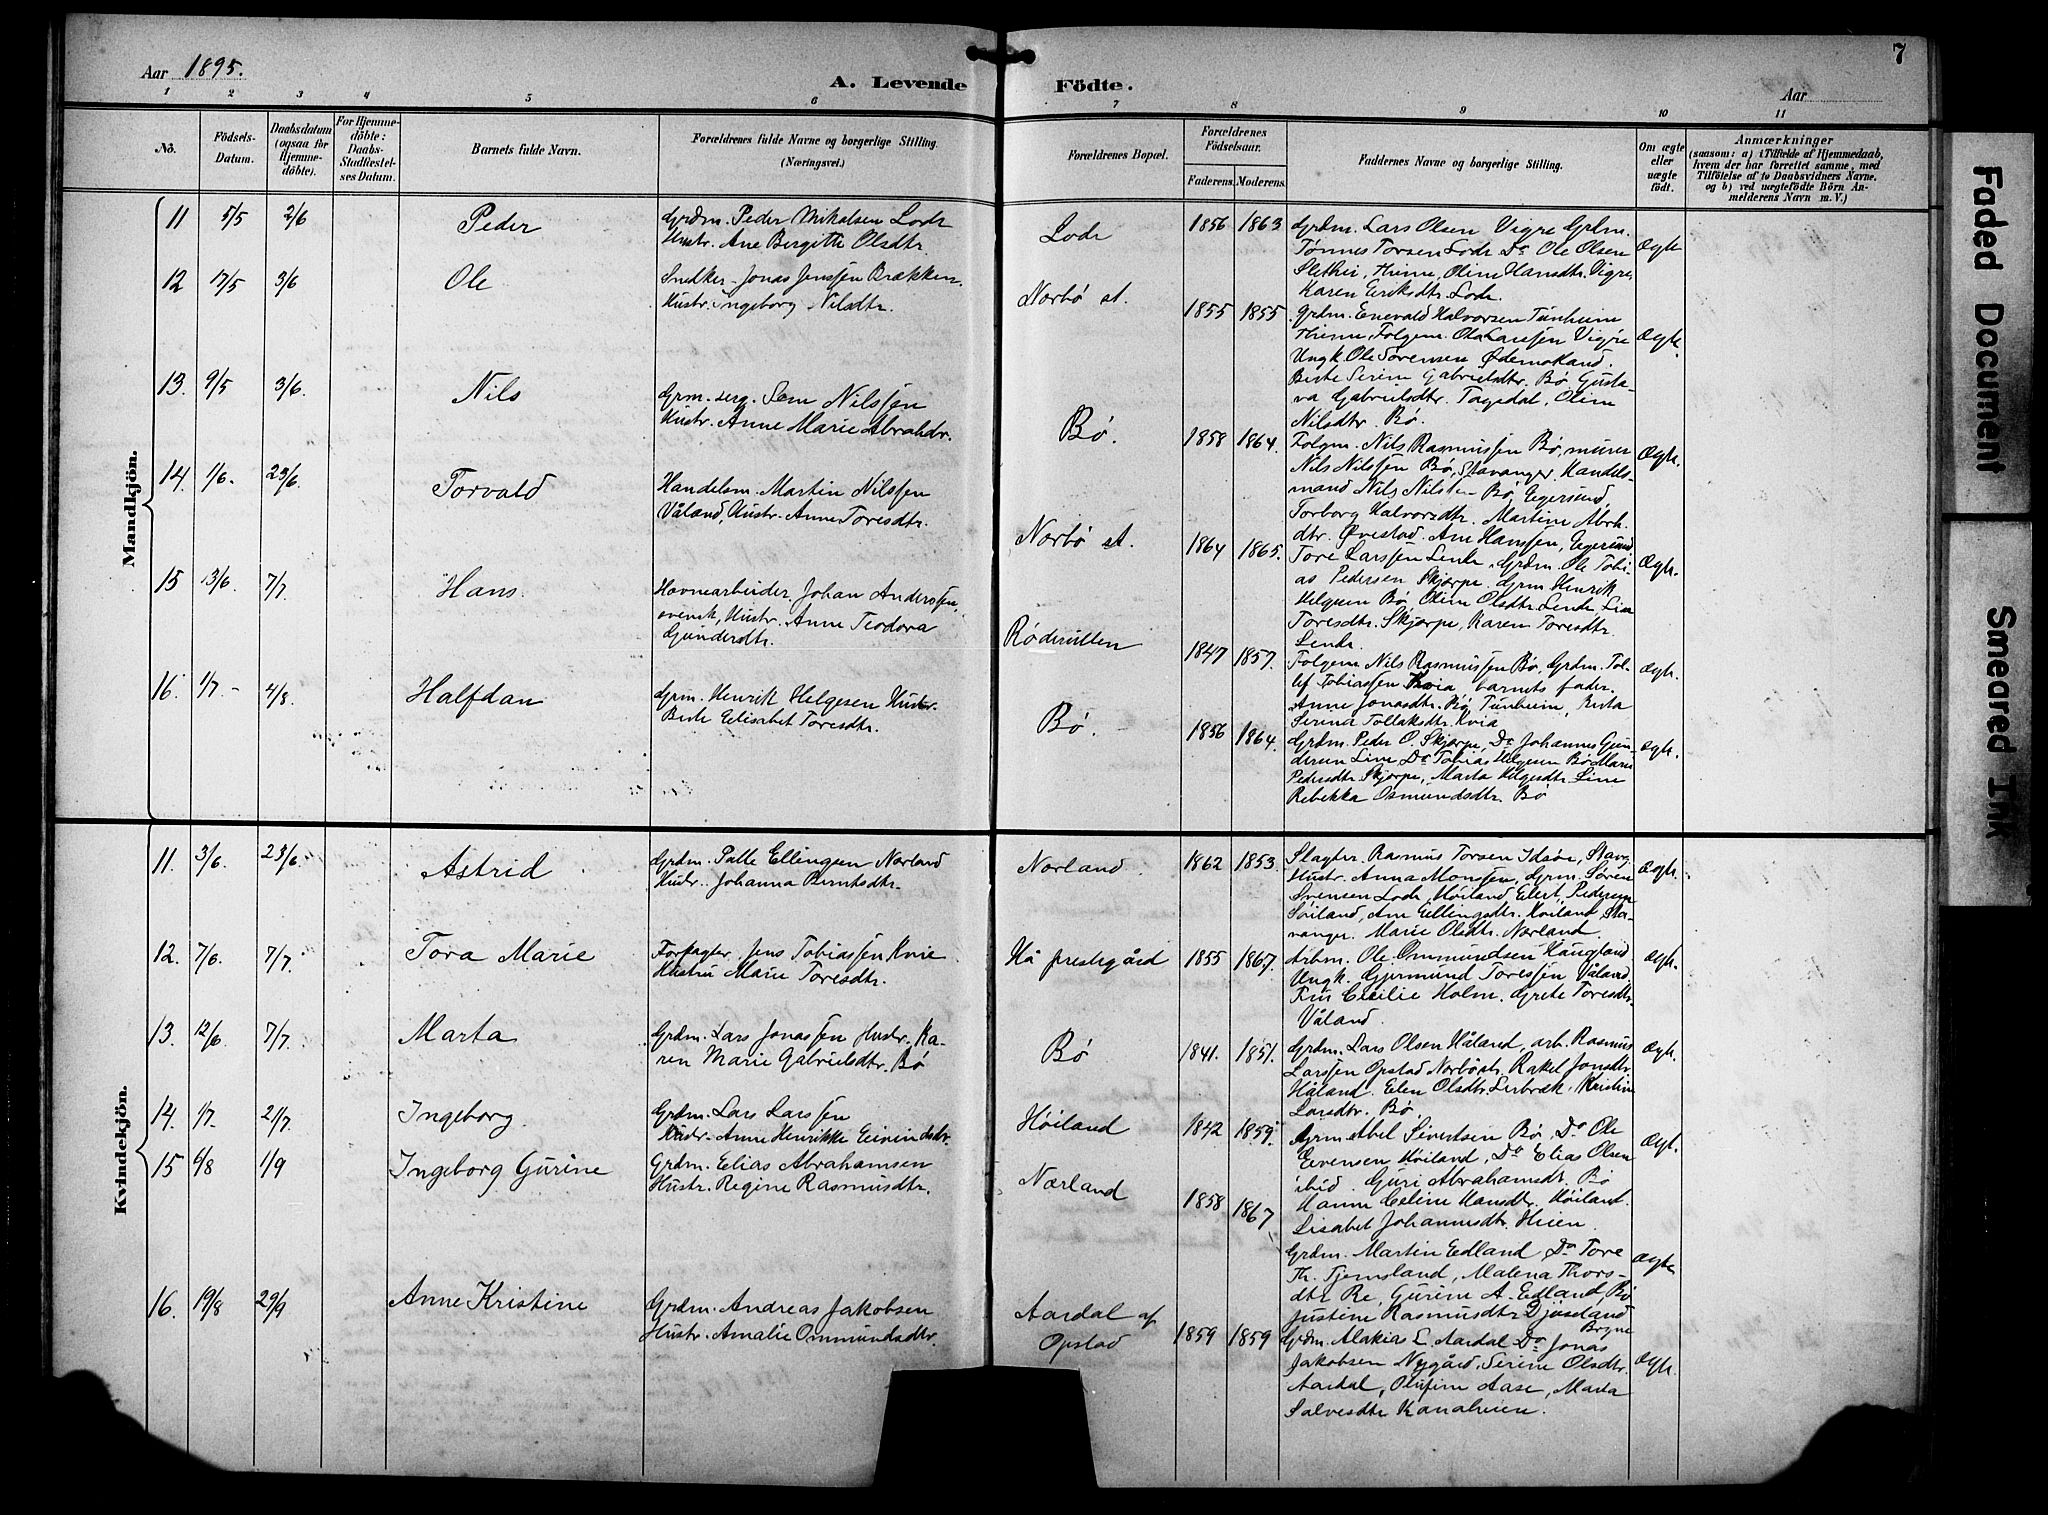 Aar 1895.
A. Levende Födte.
7
Aar
1 2 3 4 5 6 7 8 9 10 11
Nö.
Födsels-
Datum.
Daabsdatum
(ogsaa for
Hjemme-
döbte).
For Hjemme-
döbte:
Daabs-
Stadfæstel-
ses Datum.
Barnets fulde Navn.
Forældrenes fulde Navne og borgerlige Stilling.
(Næringsvei.)
Forældrenes Bopæl.
Forældrenes
Födselsaar.
Faderens. Moderens.
Faddernes Navne og borgerlige Stilling.
Om ægte
eller
uægte
födt.
Anmærkninger
(saasom: a) i Tilfælde af Hjemmedaab,
hvem der har forrettet samme, med
Tilföielse af to Daabsvidners Navne.
og b) ved uægtefödte Börn An-
melderens Navn m. V.)
Mandkjön.
11 5/5 2/6 Peder
Grdm. Peder Mikalsen Lode
Hustr. Ane Bergitte Olsdtr
Lode
1856 1863
Grdm. Lars Olsen Vigre Grdm.
Tønnes Torsen Lode Do Ole Olsen
Slethei, Hime, Oline Hansdtr. Vigre,
Karen Eriksdtr. Lode.
Ægte
12 17/5 3/6 Ole
Snedker Jonas Jenssen Brækken.
Hustr. Ingeborg Nilsdtr.
Narbø st.
1855 1855
Grdm. Enevald Halvorsen Tunheim
Ungk. Ole Sørensen Ødemokland.
Berte Serine Gabrielsdtr. Bø, Gusta-
va Gabrielsdtr. Taxedal, Oline
Nilsdtr. Bø.
Ægte.
13. 9/5 3/6. Nils
Grm. serg. Sem Nilssen
Hustr. Anne Marie Abrahdr.
Bø.
1858 1864.
Folgm. Nils Rasmussen Bø, murer
Nils Nilssen Bø, Stavanger, Handels-
mand Nils Nilsen Bø, Egersund
Torborg Halvorsdtr. Martine Abrh.
dtr. Øvestad. Ane Hanssen, Egersund
Ægte.
14. 1/6. 23/6 Torvald
Handelsm. Martin Nilssen
Våland, Hustr. Anne Toresdtr.
Narbø st.
1864 1865.
Tore Larssen Lende, Grdm. Ole Tobi-
as Pedersen Skjærpe. Grm Henrik
Helgesen Bø, Oline Olsdtr. Lende, Line
Toresdtr. Skjærpe, Karen Toresdtr.
Lende.
Ægte.
15 13/6. 7/7. Hans.
Havnearbeider. Johan Anderssen,
svensk, Hustr. Anne Teodora
Gundersdtr.
1847 1857.
Folgem Nils Rasmussen Bø, Grdm. Tol-
lef Tobiassen Kvia, barnets fader.
Anne Jonasdtr. Bø, Tunheim,
Serena Tollaksdtr. Kvia
Ægte.
16. 1/7. 4/8. Halfdan
Grm. Henrik Helgesen Hustr.
Berte Elisabet Toresdtr.
Bø.
1856 1864.
Grdm. Peder O. Skjærpe, Do Johannes Gun-
dersen Line Do Tobias Helgesen Bø Marie
Pedersdtr. Skjærpe, Marta Helgesdtr. Line
Rebekka Osmundsdtr. Bø
Ægte.
Kvindekjön.
11. 3/6. 23/6. Astrid
Grdm. Palle Ellingsen Nærland
Hustr. Johanna Berntsdtr.
Nærland.
1862 1853.
Slagter. Rasmus Torsen Idsøe, Stavg.
Hustr. Anna Monssen, Grm. Søren
Svensen Lode, Høiland, Elert Pedersen
Søiland, Ane Ellingsdtr. Høiland, Sta-
vanger. Marie Olsdtr. Nærland.
Ægte.
12. 7/6. 7/7. Tora Marie
Forpagter. Jens Tobiassen Kvie
Hustru Marie Toresdtr.
Hå prestegård
1855 1867.
Arbm. Ole Ommundsen Haugland
Ungk. Gjermund Toressen Våland.
Frue Cecilie Holm. Grete Toresdtr.
Våland.
Ægte.
13. 12/6. 7/7. Marta
Grdm. Lars Jonassen Hustr. Ka-
ren Marie Gabrielsdtr. Bø
Bø
1841. 1851.
Grdm. Lars Olsen Håland, arb. Rasmus
Larssen Opstad Narbø st. Rakel Jonsdtr.
Håland. Elen Olsdtr. Lerbræk. Kristine
Larsdtr. Bø.
Ægte.
14. 1/7. 21/7. Ingeborg
Grdm. Lars Larssen
Hustr. Anne Henrikke Eivindsdtr.
Høiland
1842 1859.
Grm. Abel Sivertsen Bø, Do Ole
Eivensen Høiland, Do Elias Olsen
ibid. Guri Abrahamsdt. Bø
Hanne Celine Hansdtr. Høiland.
Lisabet Johannesdtr. Heien.
Ægte.
15 6/8 1/9 Ingeborg Gurine
Grdm. Elias Abrahamsen
Hustr. Regine Rasmusdtr.
Nærland
1858 1867
Grdm. Martin Edland, Do Tore
Th. Tjemsland, Malena Thors-
dtr Re, Gurine A. Edland, Bø
Justine Rasmusdtr Djuseland
Bryne
Ægte
16. 19/8 29/9 Anne Kristine
Grdm. Andreas Jakobsen
Hustr. Amalie Ommundsdtr.
Aardal af
Opstad
1859 1859
Grdm. Alakias L. Aardal Do Jonas
Jakobsen Nygård, Serine Olsdtr.
Aardal, Olufine Aase, Marta
Salvesdtr Kanalheien.
Ægte.
Faded Document
Smeared Ink